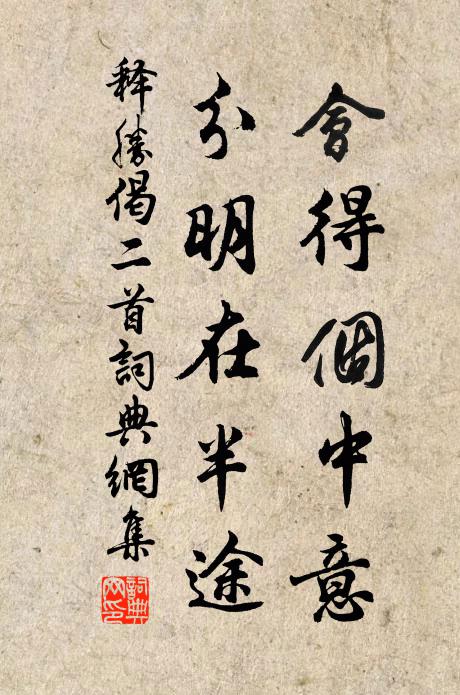 會得個中意
分明在半途
释勝偈二首詞典網集
詞典
网印